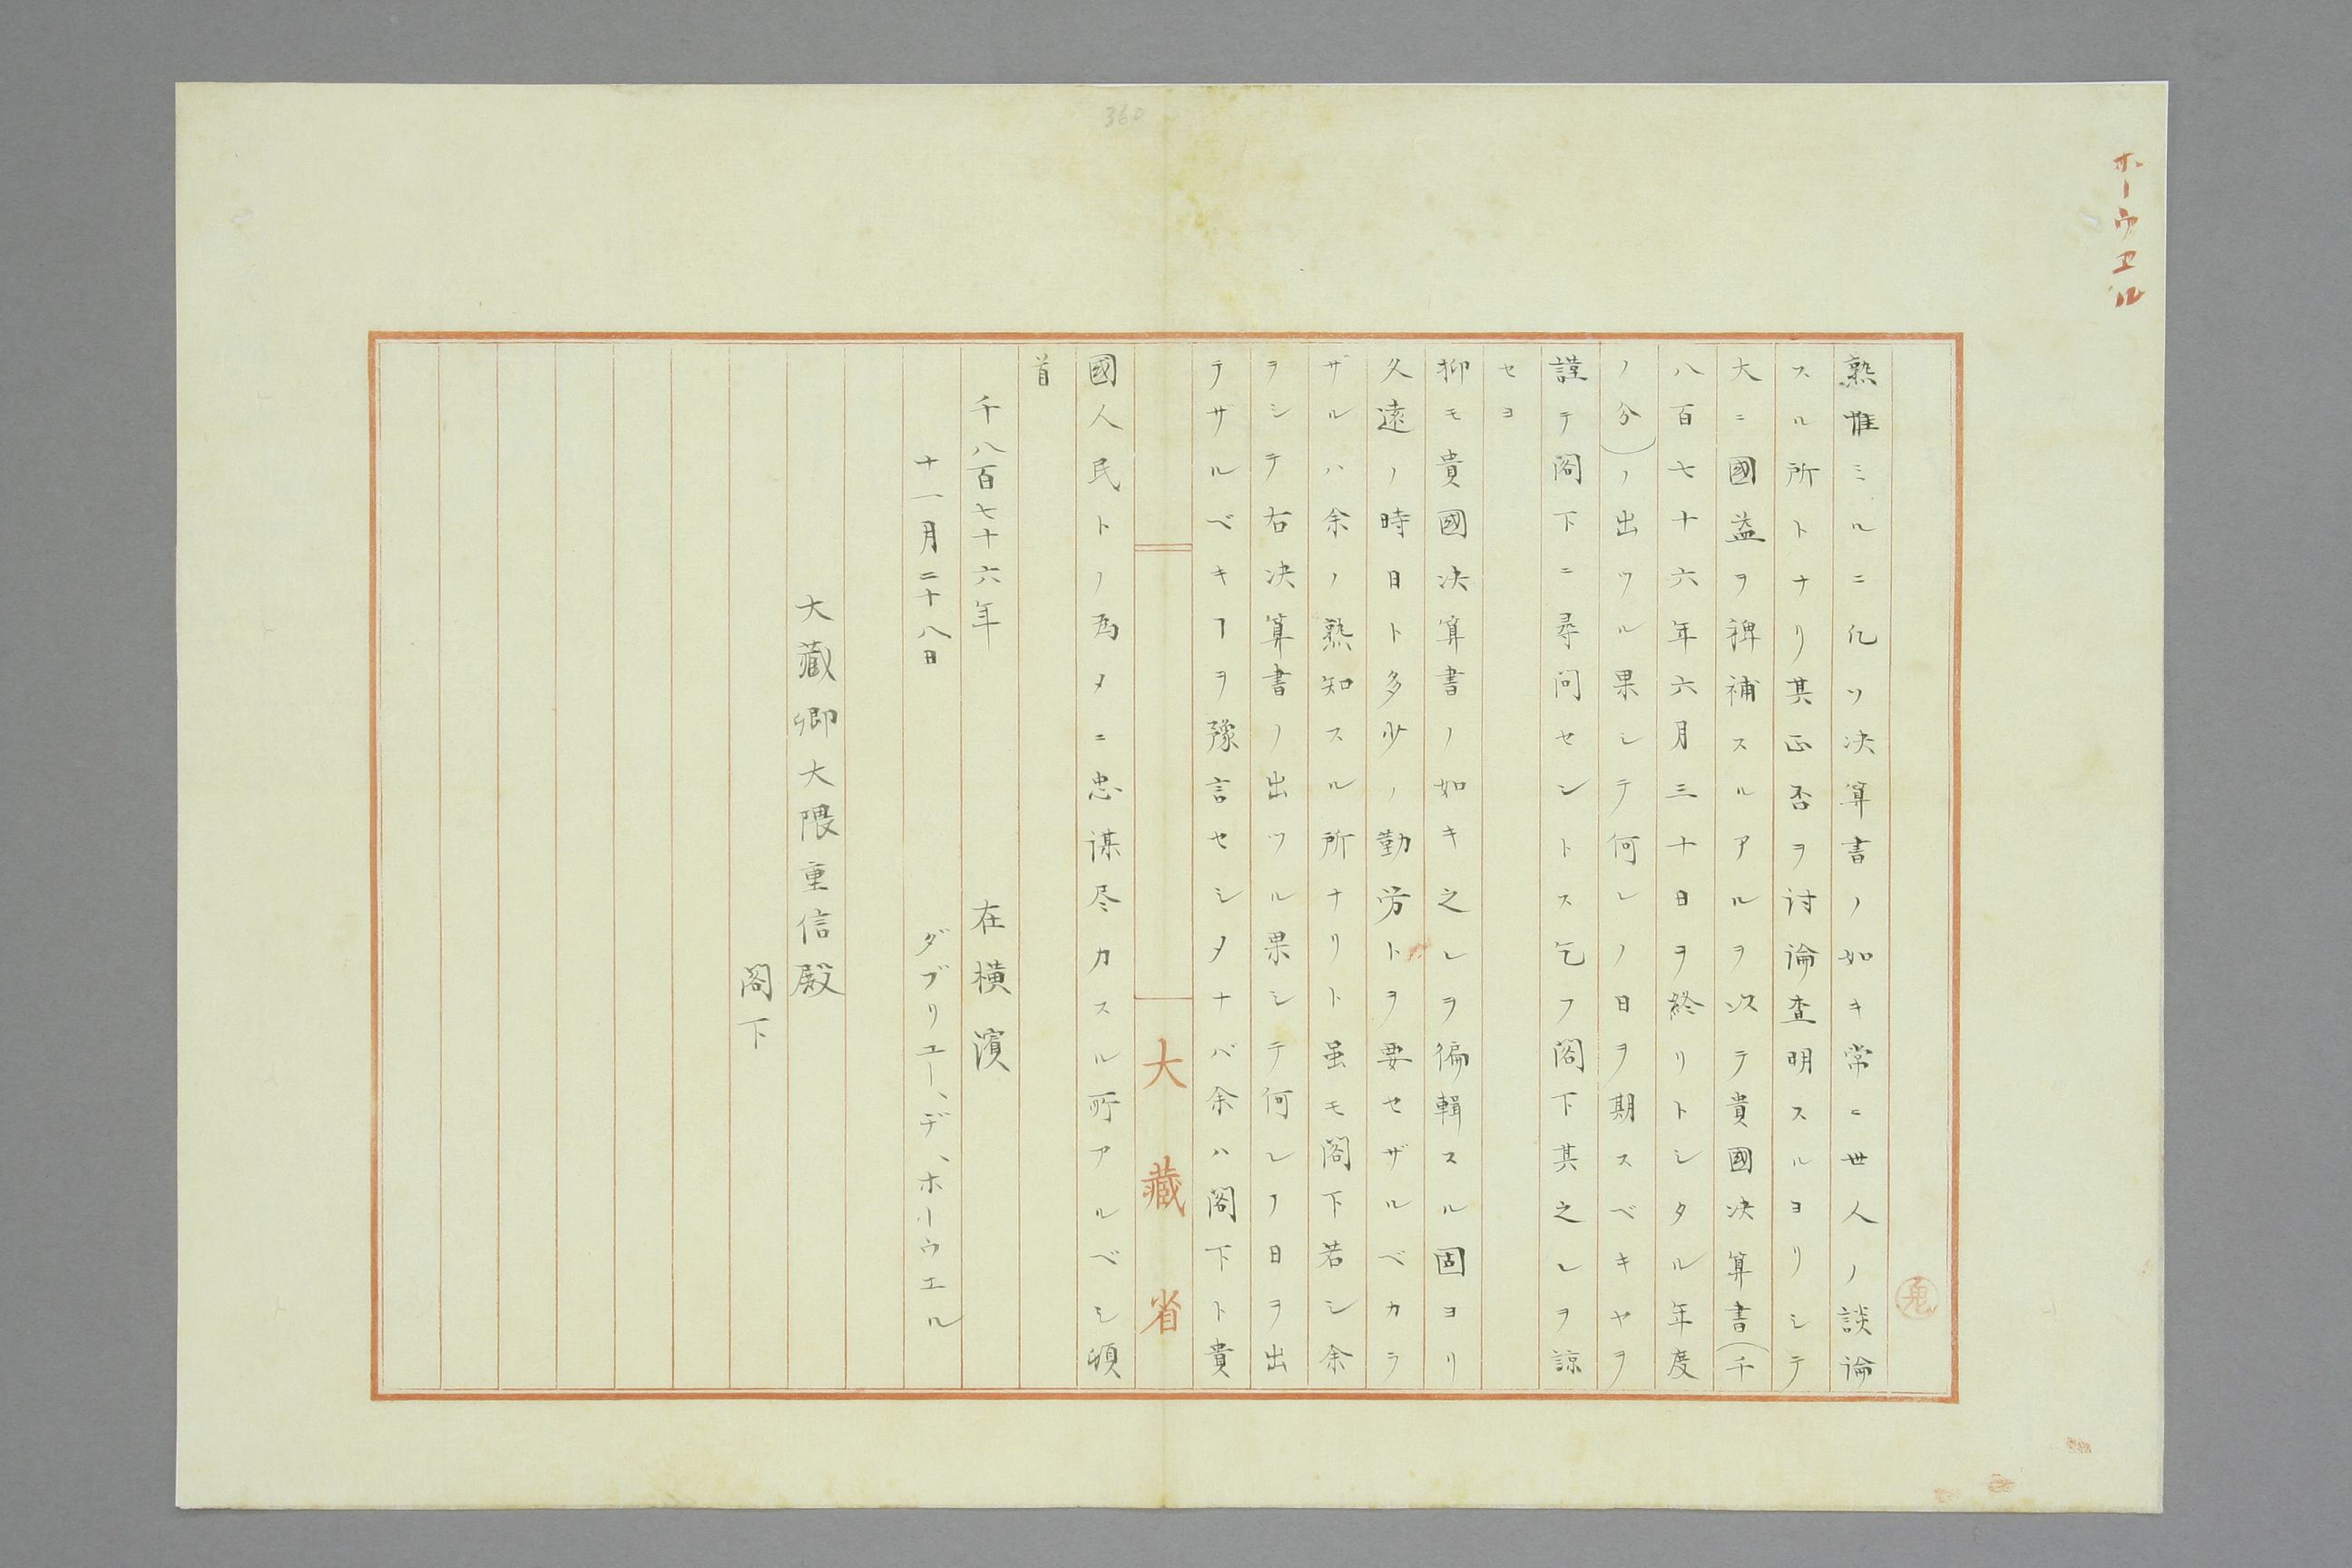 ホーウエル
熟惟ミルニ凡ソ决算書ノ如キ常ニ世人ノ談論
スル所トナリ其正否ヲ討論査明スルヨリシテ
大ニ國益ヲ裨補スルアルヲ以テ貴國决算書(千
八百七十六年六月三十日ヲ終リトシタル年度
ノ分)ノ出ツル果シテ何レノ日ヲ期スベキヤヲ
謹テ閣下ニ尋问セントス乞フ閣下其之レヲ諒
セヨ
抑モ貴國决算書ノ如キ之レヲ徧輯スル固ヨリ
久遠ノ時日ト多少ノ勤労トヲ要セザルベカラ
ザルハ余ノ熟知スル所ナリト虽モ閣下若シ余
ヲシテ右决算書ノ出ツル果シテ何レノ日ヲ出
テザルベキヿヲ豫言セシメナバ余ハ閣下ト貴
大藏省
國人民トノ為メニ忠謀尽力スル所アルベシ頓
首
千八百七十六年
在横濱
十一月二十八日
ダブリユー、デ、ホーウエル
大藏卿大隈重信殿
閣下
360